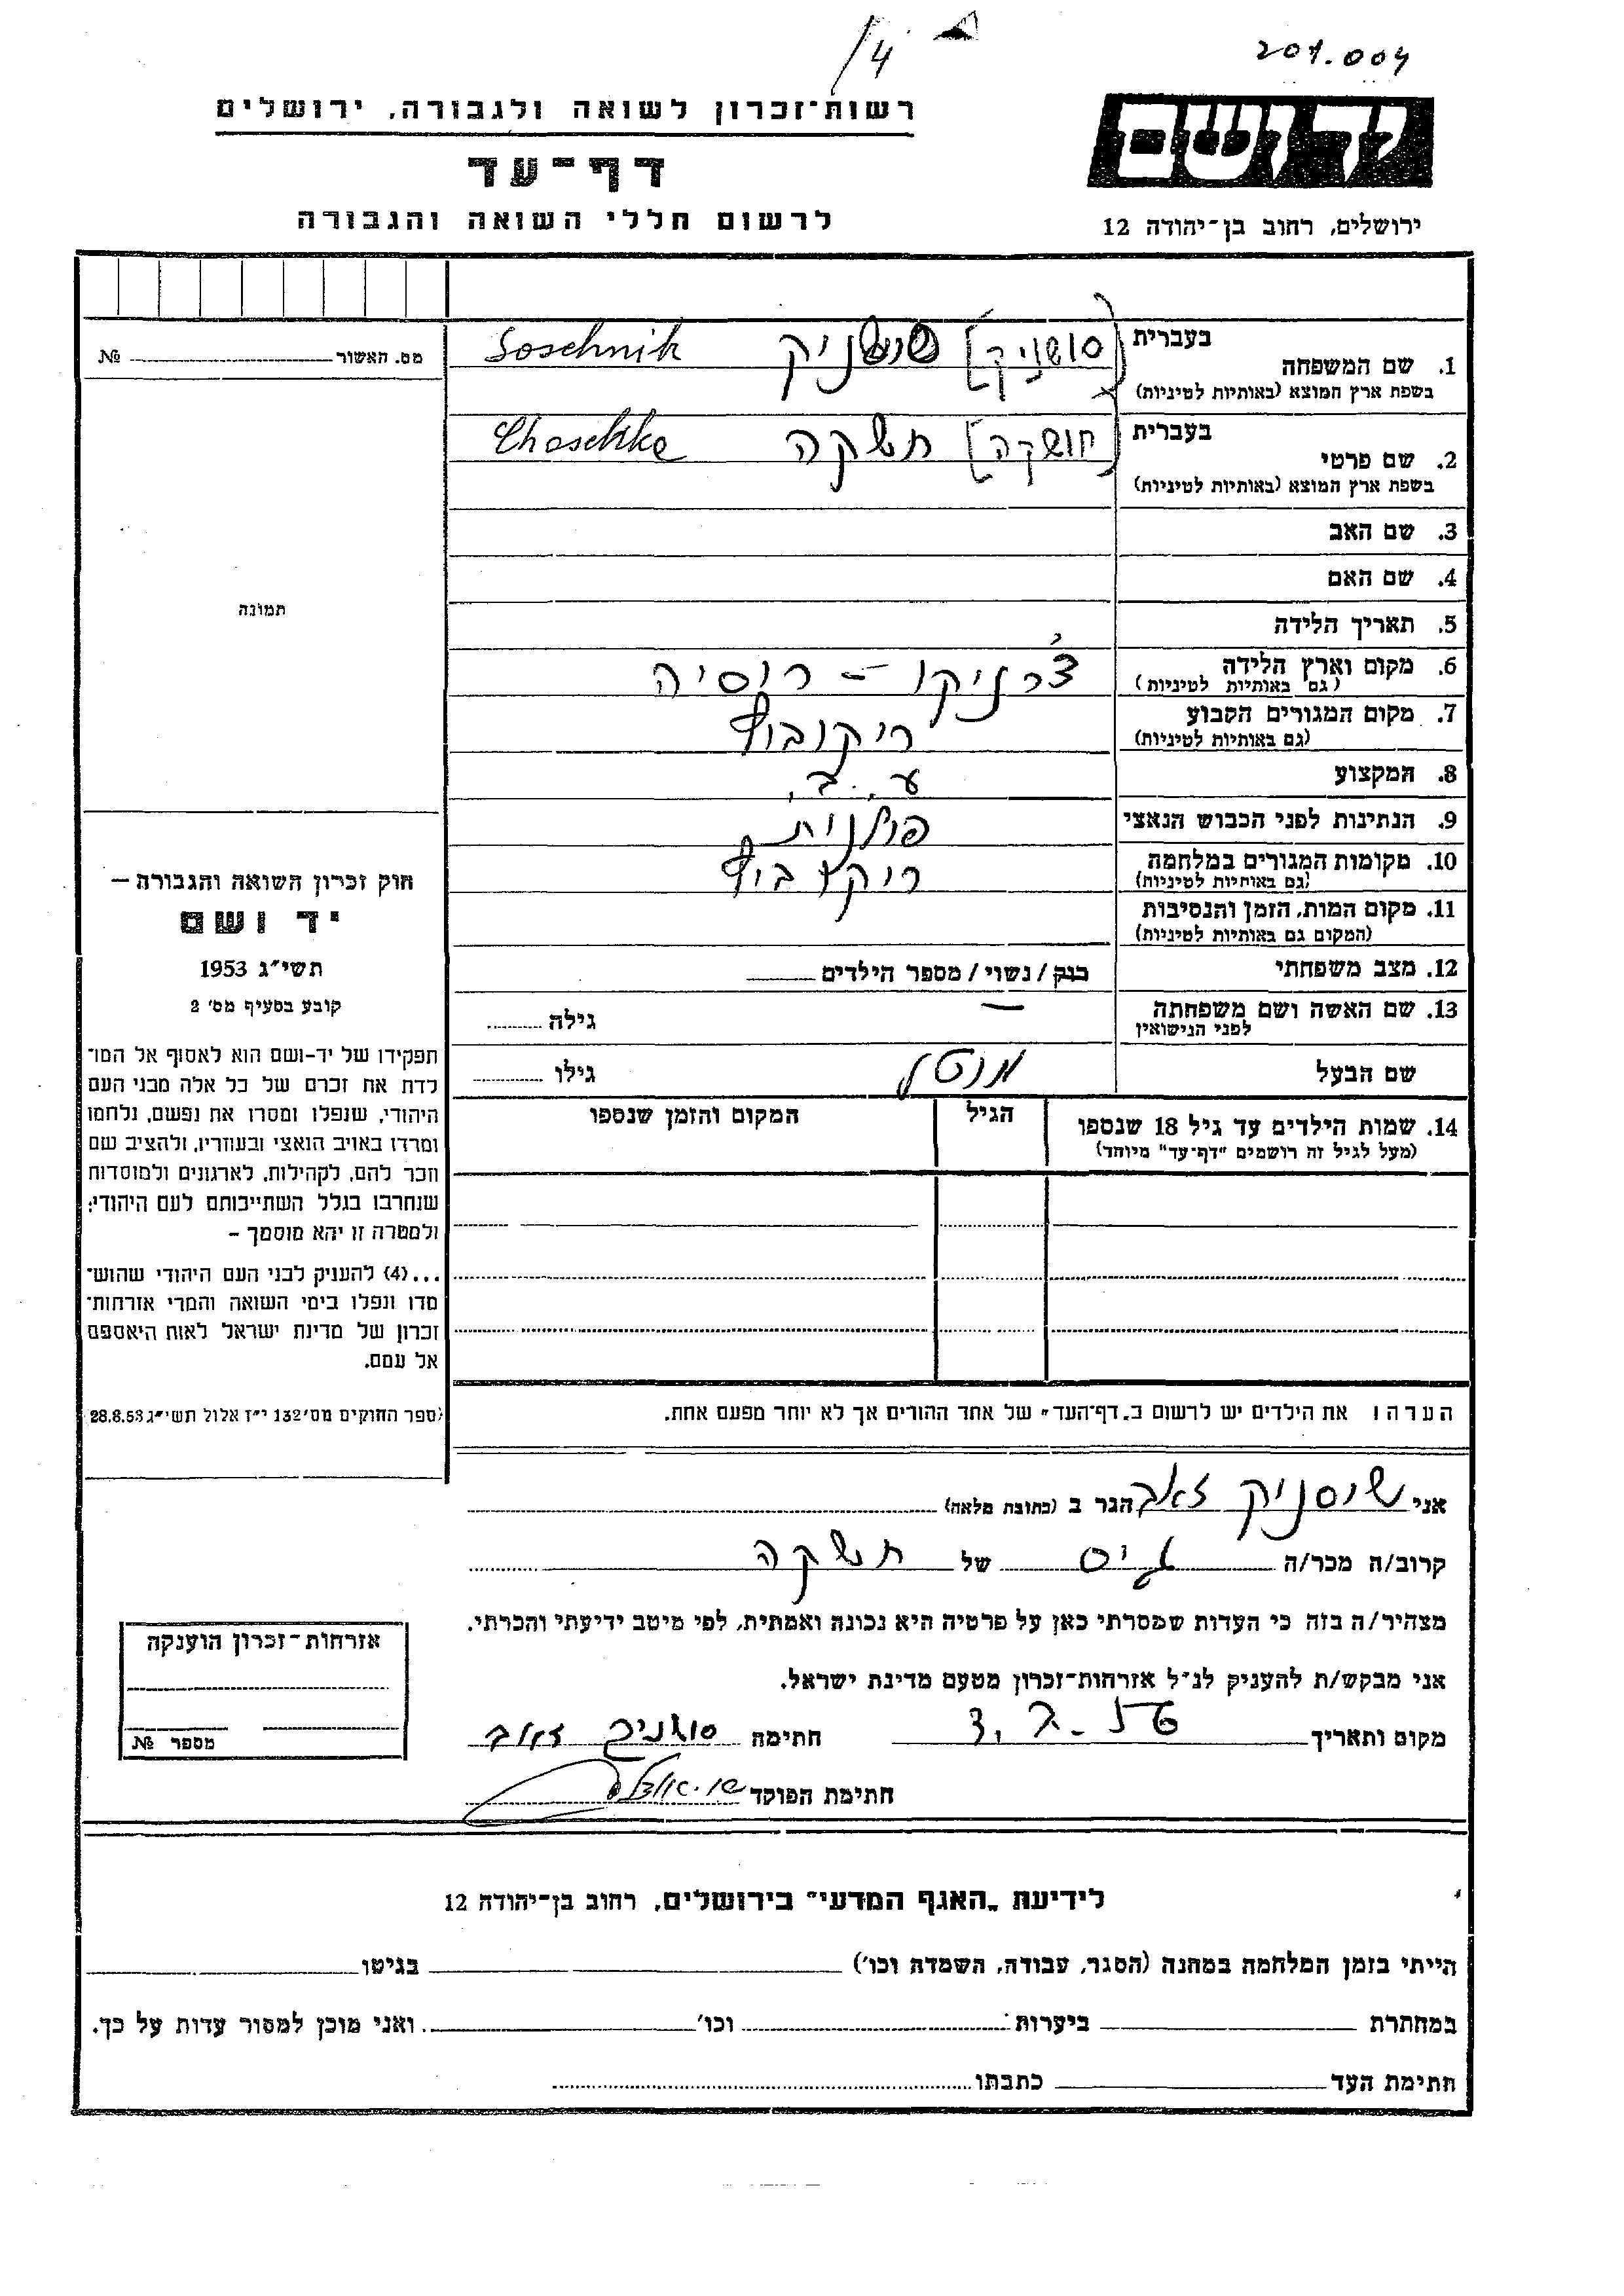 /4
207.004
רשות־זכרון לשואה ולגבורה, ירושלים
דף־עד
לרשום חללי השואה והגבורה
יד ושם
ירושלים, רחוב בן־יהודה 12
מס. האשור № 
תמונה
חוק זכרון השואה והגבורה —
יד ושם
תשי״ג 1953
קובע בסעיף מס׳ 2
תפקידו של יד-ושם הוא לאסוף אל המו־
לדת את זכרם של כל אלה מבני העם
היהודי, שנפלו ומסרו את נפשם, נלחמו
ומרדו באויב הנאצי ובעוזריו, ולהציב שם
וזכר להם, לקהילות, לארגונים ולמוסדות
שנחרבו בגלל השתייכותם לעם היהודי;
ולמטרה זו יהא מוסמך –
...(4) להעניק לבני העם היהודי שהוש־
מדו ונפלו בימי השואה והמרי אזרחות־
זכרון של מדינת ישראל לאות היאספם
אל עמם.
(ספר החוקים מס׳ 132 י״ז אלול תשי״ג 28.8.53
1. שם המשפחה בעברית [סושניק] Soschnik
בשפת ארץ המוצא (באותיות לטיניות)
2. שם פרטי בעברית [חושקה] חשקה Choschke
בשפת ארץ המוצא (באותיות לטיניות)
3. שם האב
4. שם האם
5. תאריך הלידה
6. מקום וארץ הלידה צ׳רניקו – רוסיה
(גם באותיות לטיניות)
7. מקום המגורים הקבוע ריקובוף
(גם באותיות לטיניות)
8. המקצוע ע. ב.
9. הנתינות לפני הכבוש הנאצי פולנית
10. מקומות המגורים במלחמה ריקובוף
(גם באותיות לטיניות)
11. מקום המות, הזמן והנסיבות
(המקום גם באותיות לטיניות)
12. מצב משפחתי רווק / נשוי / מספר הילדים
13. שם האשה ושם משפחתה — גילה
לפני הנישואין
שם הבעל מוטל גילו
14. שמות הילדים עד גיל 18 שנספו הגיל המקום והזמן שנספו
(מעל לגיל זה רושמים ״דף־עד״ מיוחד)
הערה: את הילדים יש לרשום ב״דף־העד״ של אחד ההורים אך לא יותר מפעם אחת.
אני שוסניק זאב הגר ב (כתובת מלאה)
קרוב/ה מכר/ה גיס של חשקה
מצהיר/ה בזה כי העדות שמסרתי כאן על פרטיה היא נכונה ואמתית, לפי מיטב ידיעתי והכרתי.
אני מבקש/ת להעניק לנ״ל אזרחות־זכרון מטעם מדינת ישראל.
מקום ותאריך חתימה סושניק זאב
חתימת הפוקד
אזרחות־זכרון הוענקה
מספר №
לידיעת ״האגף המדעי״ בירושלים, רחוב בן־יהודה 12
הייתי בזמן המלחמה במחנה (הסגר, עבודה, השמדה וכו׳) בגיטו
במחתרת ביערות וכו׳ ואני מוכן למסור עדות על כך.
חתימת העד כתבתו